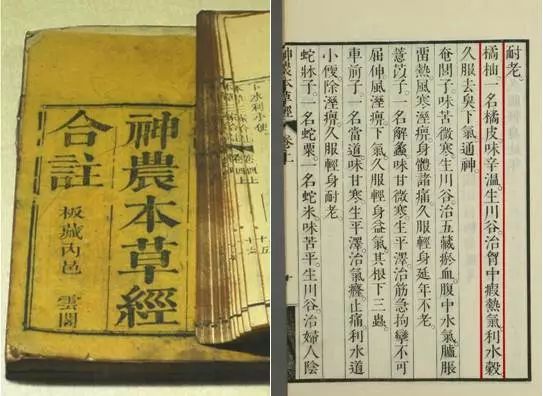 神農本草經
合註
板藏內邑 雲閣
下水利小便
耐老。
橘柚。一名橘皮味辛溫。生川谷治胷中瘕熱氣利水穀
久服去臭下氣通神。
奄閭子。味苦微寒生川谷治五藏瘀血腹中水氣臚脹
畱熱風寒溼痹身體諸痛久服輕身延年不老。
薏苡子。一名解蠡味甘微寒。生平澤治筋急拘攣不可
屈伸風溼痹。下氣久服輕身益氣其根下三蟲。
車前子。一名當道味甘寒生平澤。治氣癃。止痛利水道
小便除溼痹久服輕身耐老。
蛇牀子。一名蛇粟一名蛇米味苦平生川谷治婦人陰
神農本草經 卷上
十